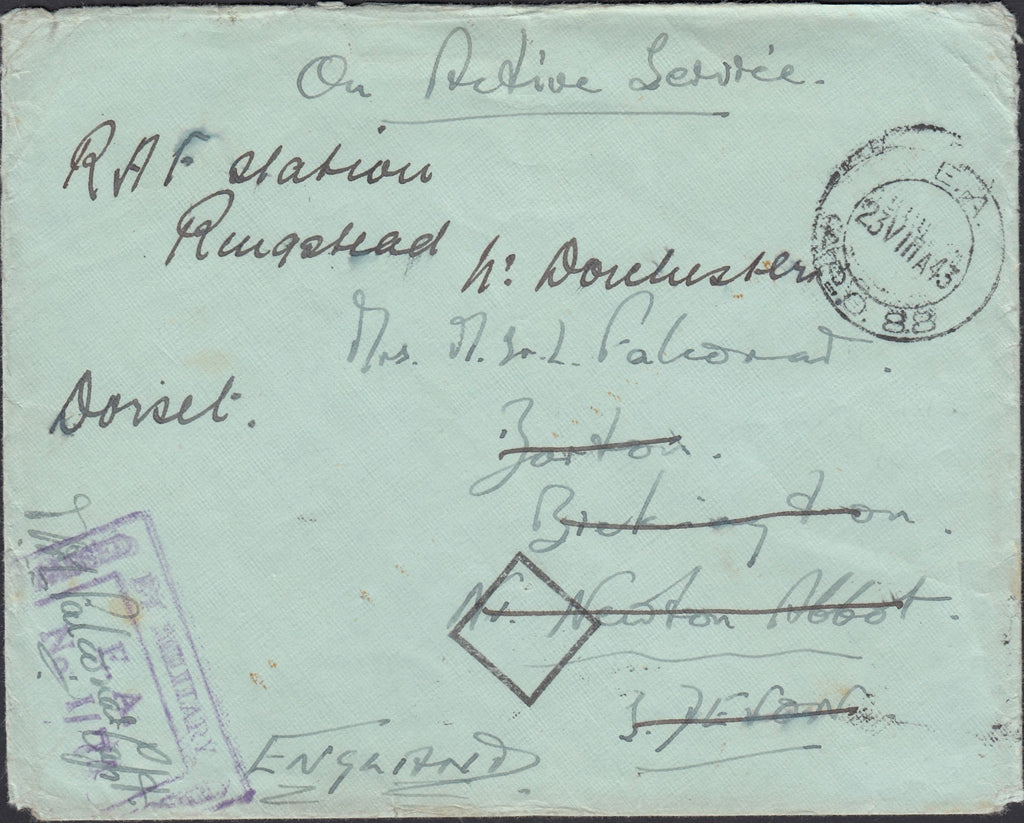 On Active Service.
RAF Station
Ringstead
Nr Dorchester
Mrs. M.
Dorset.
Barton.
Bickington.
Nr. Newton Abbot.
S. DEVON
ENGLAND
E.A
23 VIII A 43
A.P.O. 88
BY MILITARY
E.A.
No.